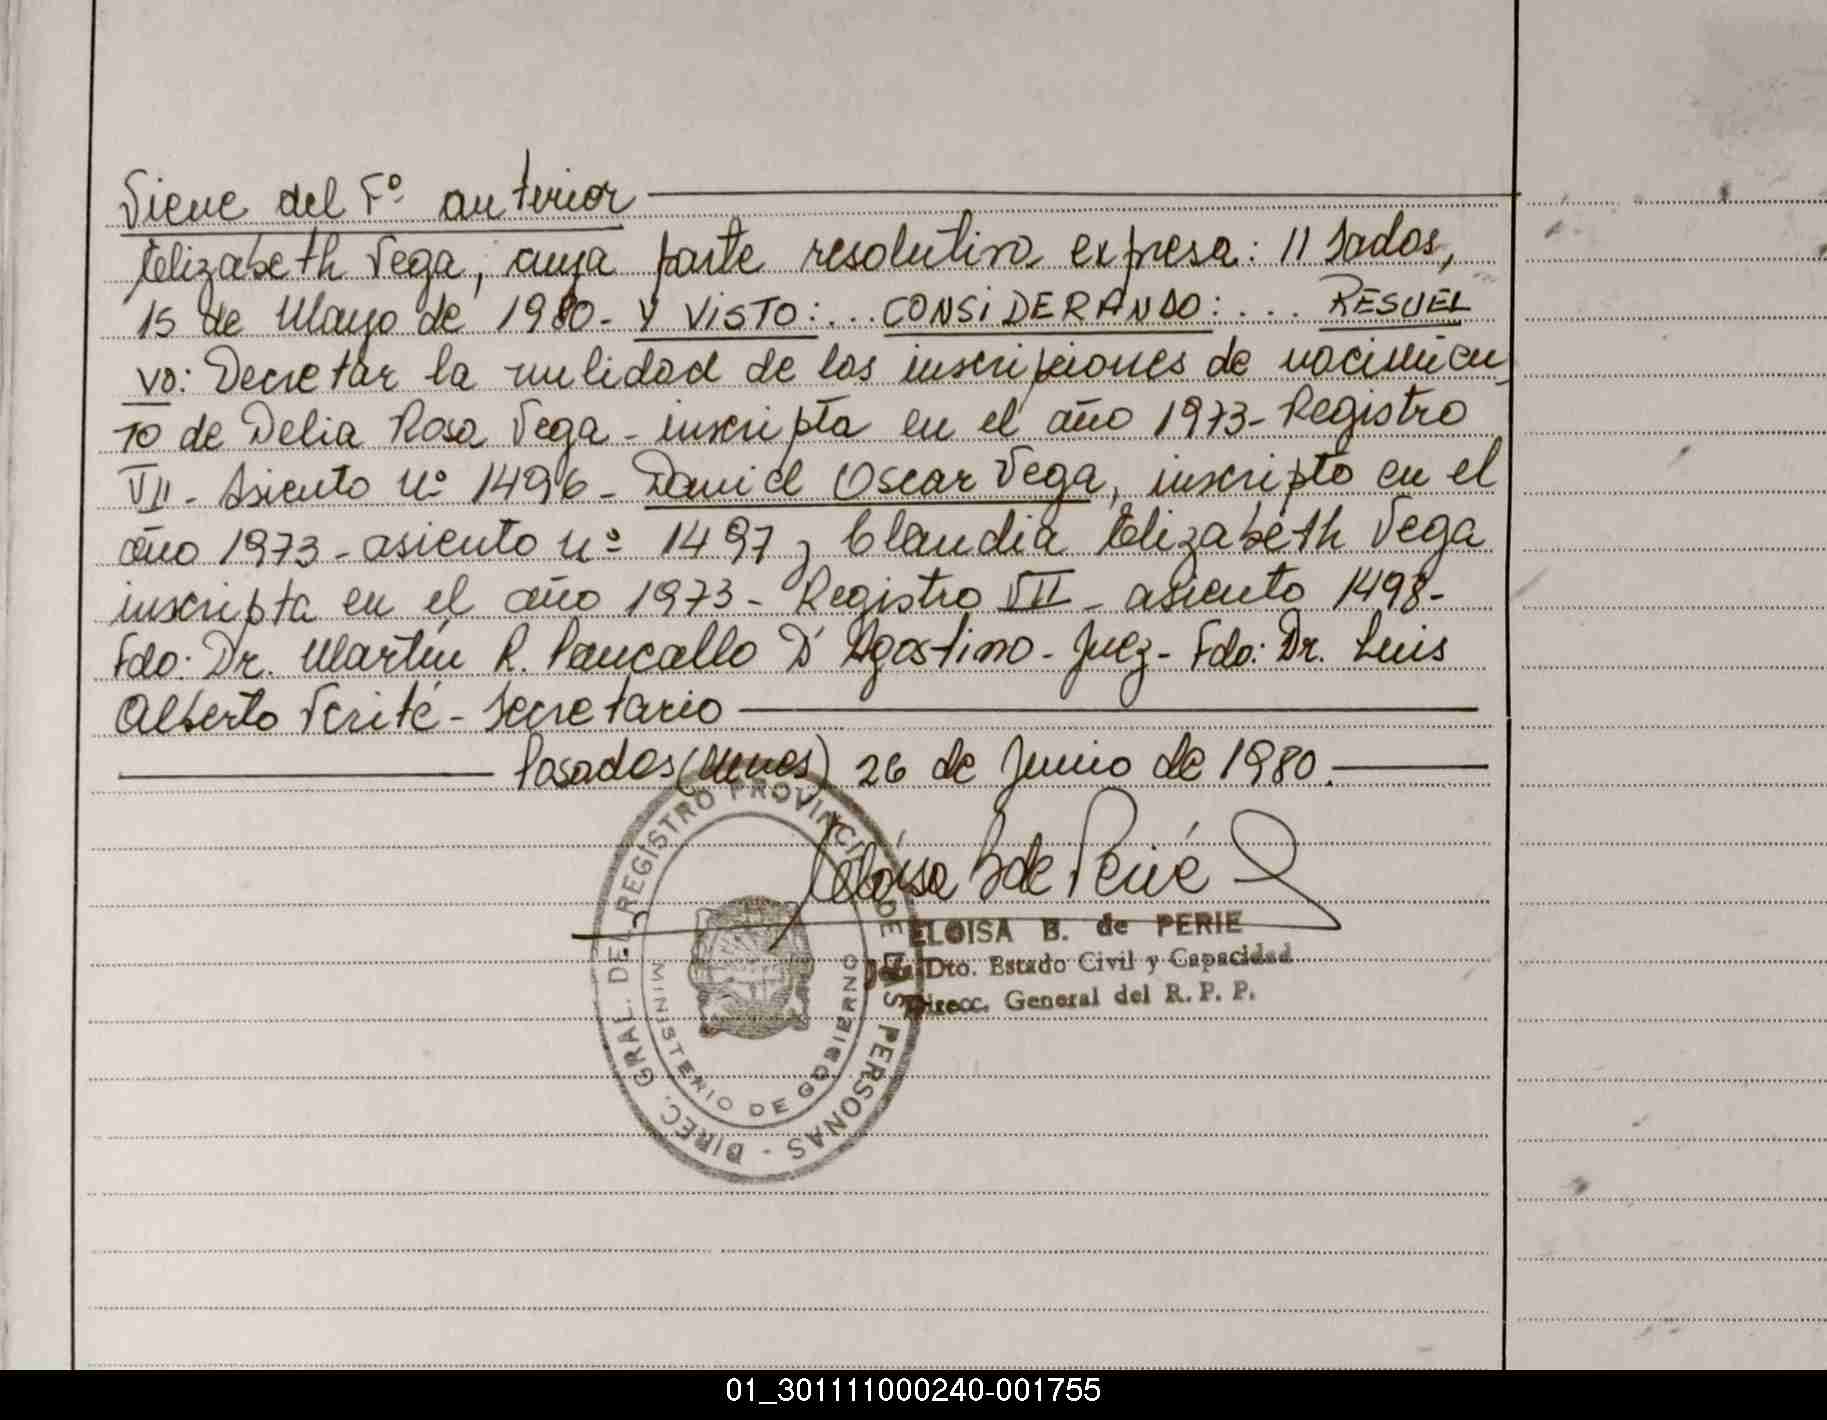 Viene del Fº anterior
Elizabeth Vega, cuya parte resolutiva expresa: "Posadas,
15 de Mayo de 1980.- Y VISTO:... CONSIDERANDO:.... RESUEL
VO: Decretar la nulidad de las inscripciones de nacimien-
to de Delia Rosa Vega - inscripta en el año 1973 - Registro
VII - Asiento Nº 1496 - Daniel Oscar Vega, inscripto en el
año 1973 - asiento nº 1497 y Claudia Elizabeth Vega
inscripta en el año 1973 - Registro VII - asiento 1498 -
Fdo: Dr. Martín R. Pancallo D'Agostino - Juez - Fdo: Dr. Luis
Alberto Verité - Secretario
Posadas (Mnes) 26 de Junio de 1980.
Eloisa B de Perié
ELOISA B. de PERIE
Jefa Dto. Estado Civil y Capacidad
Direcc. General del R. P. P.
DIREC. GRAL. DEL REGISTRO PROVINCIAL DE LAS PERSONAS -
MINISTERIO DE GOBIERNO
01_301111000240-001755